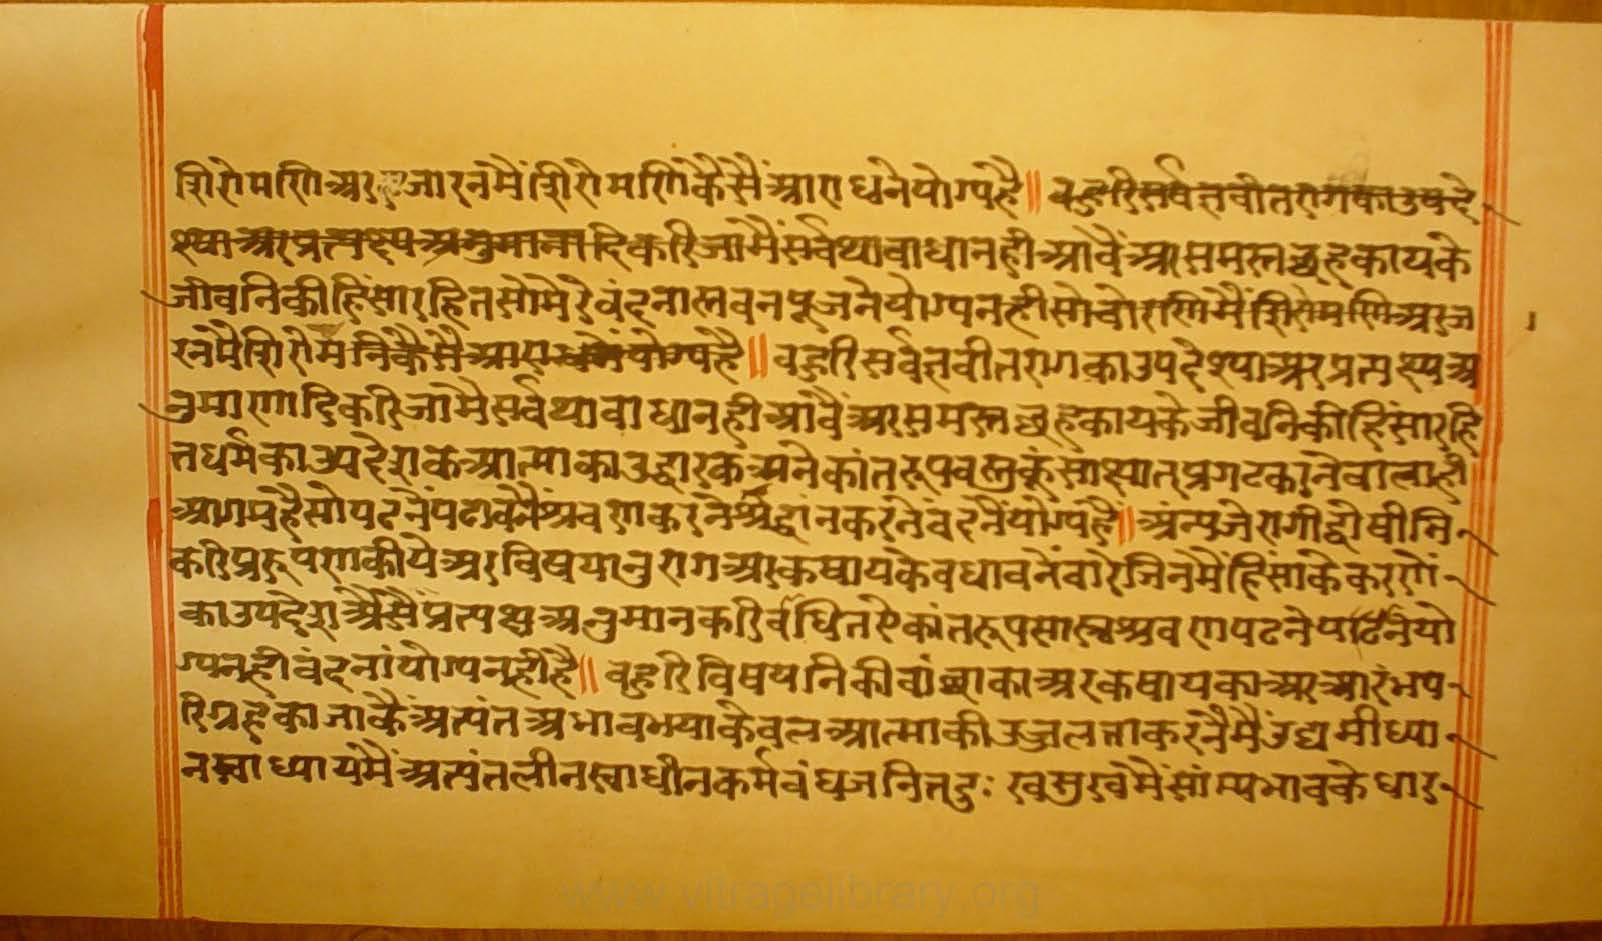 शिरोमणि अर जारनमैं शिरोमणिकैसैं आराधने योग्य है॥ बहुरि सर्वज्ञ वीतरागका उपदे
श्या अर प्रत्यक्ष्य अनुमानादिकरि जामैं सर्वथा बाधा नही आवें अर समस्त छहकायके
जीवनिकी हिंसारहित सो मेरे वंदना स्तवन पूजने योग्य नही सो चोरणिमैं शिरोमणि अर ज
रनमै शिरोमनिकैसै आराधनें योग्य है॥ बहुरि सर्वज्ञ वीतरागका उपदेश्या अर प्रत्यक्ष्य अ
नुमाणादिकरि जामै सर्वथा बाधा नही आवैं अर समस्त छहकायके जीवनिकी हिंसा रहि
त धर्मका उपदेशक आत्माका उद्धारक अनेकांतरूप वस्तुकूं साक्ष्यात् प्रगट करनेवाला ही
आगम है सो पढनें पढावनें श्रवण करने श्रद्धांन करने वंदनें योग्य है॥ अंन्य जे रागी द्वेषीनि
करि प्ररूपणा कीये अर विषयानुराग अर कषायके वधावनें वारे जिनमें हिंसाके करणें
का उपदेश अैसैं प्रत्यक्ष अनुमानकरि वधित ऐकांतरूप सास्त्र श्रवण पढने पाढने यो
ग्य नही वंदनां योग्य नही है॥ बहुरि विषयनिकी वांछाका अर कषायका अर आरंभ प
रिग्रहका जाकैं अत्यंत अभाव भया केवल आत्माकी उज्जलता करनैमैं उद्यमी ध्या
न स्वाध्यायमैं अत्यंत लीन स्वाधीन कर्मबंध जनित दुःख सुखमें सांम्यभावके धार
www.vitragelibrary.org